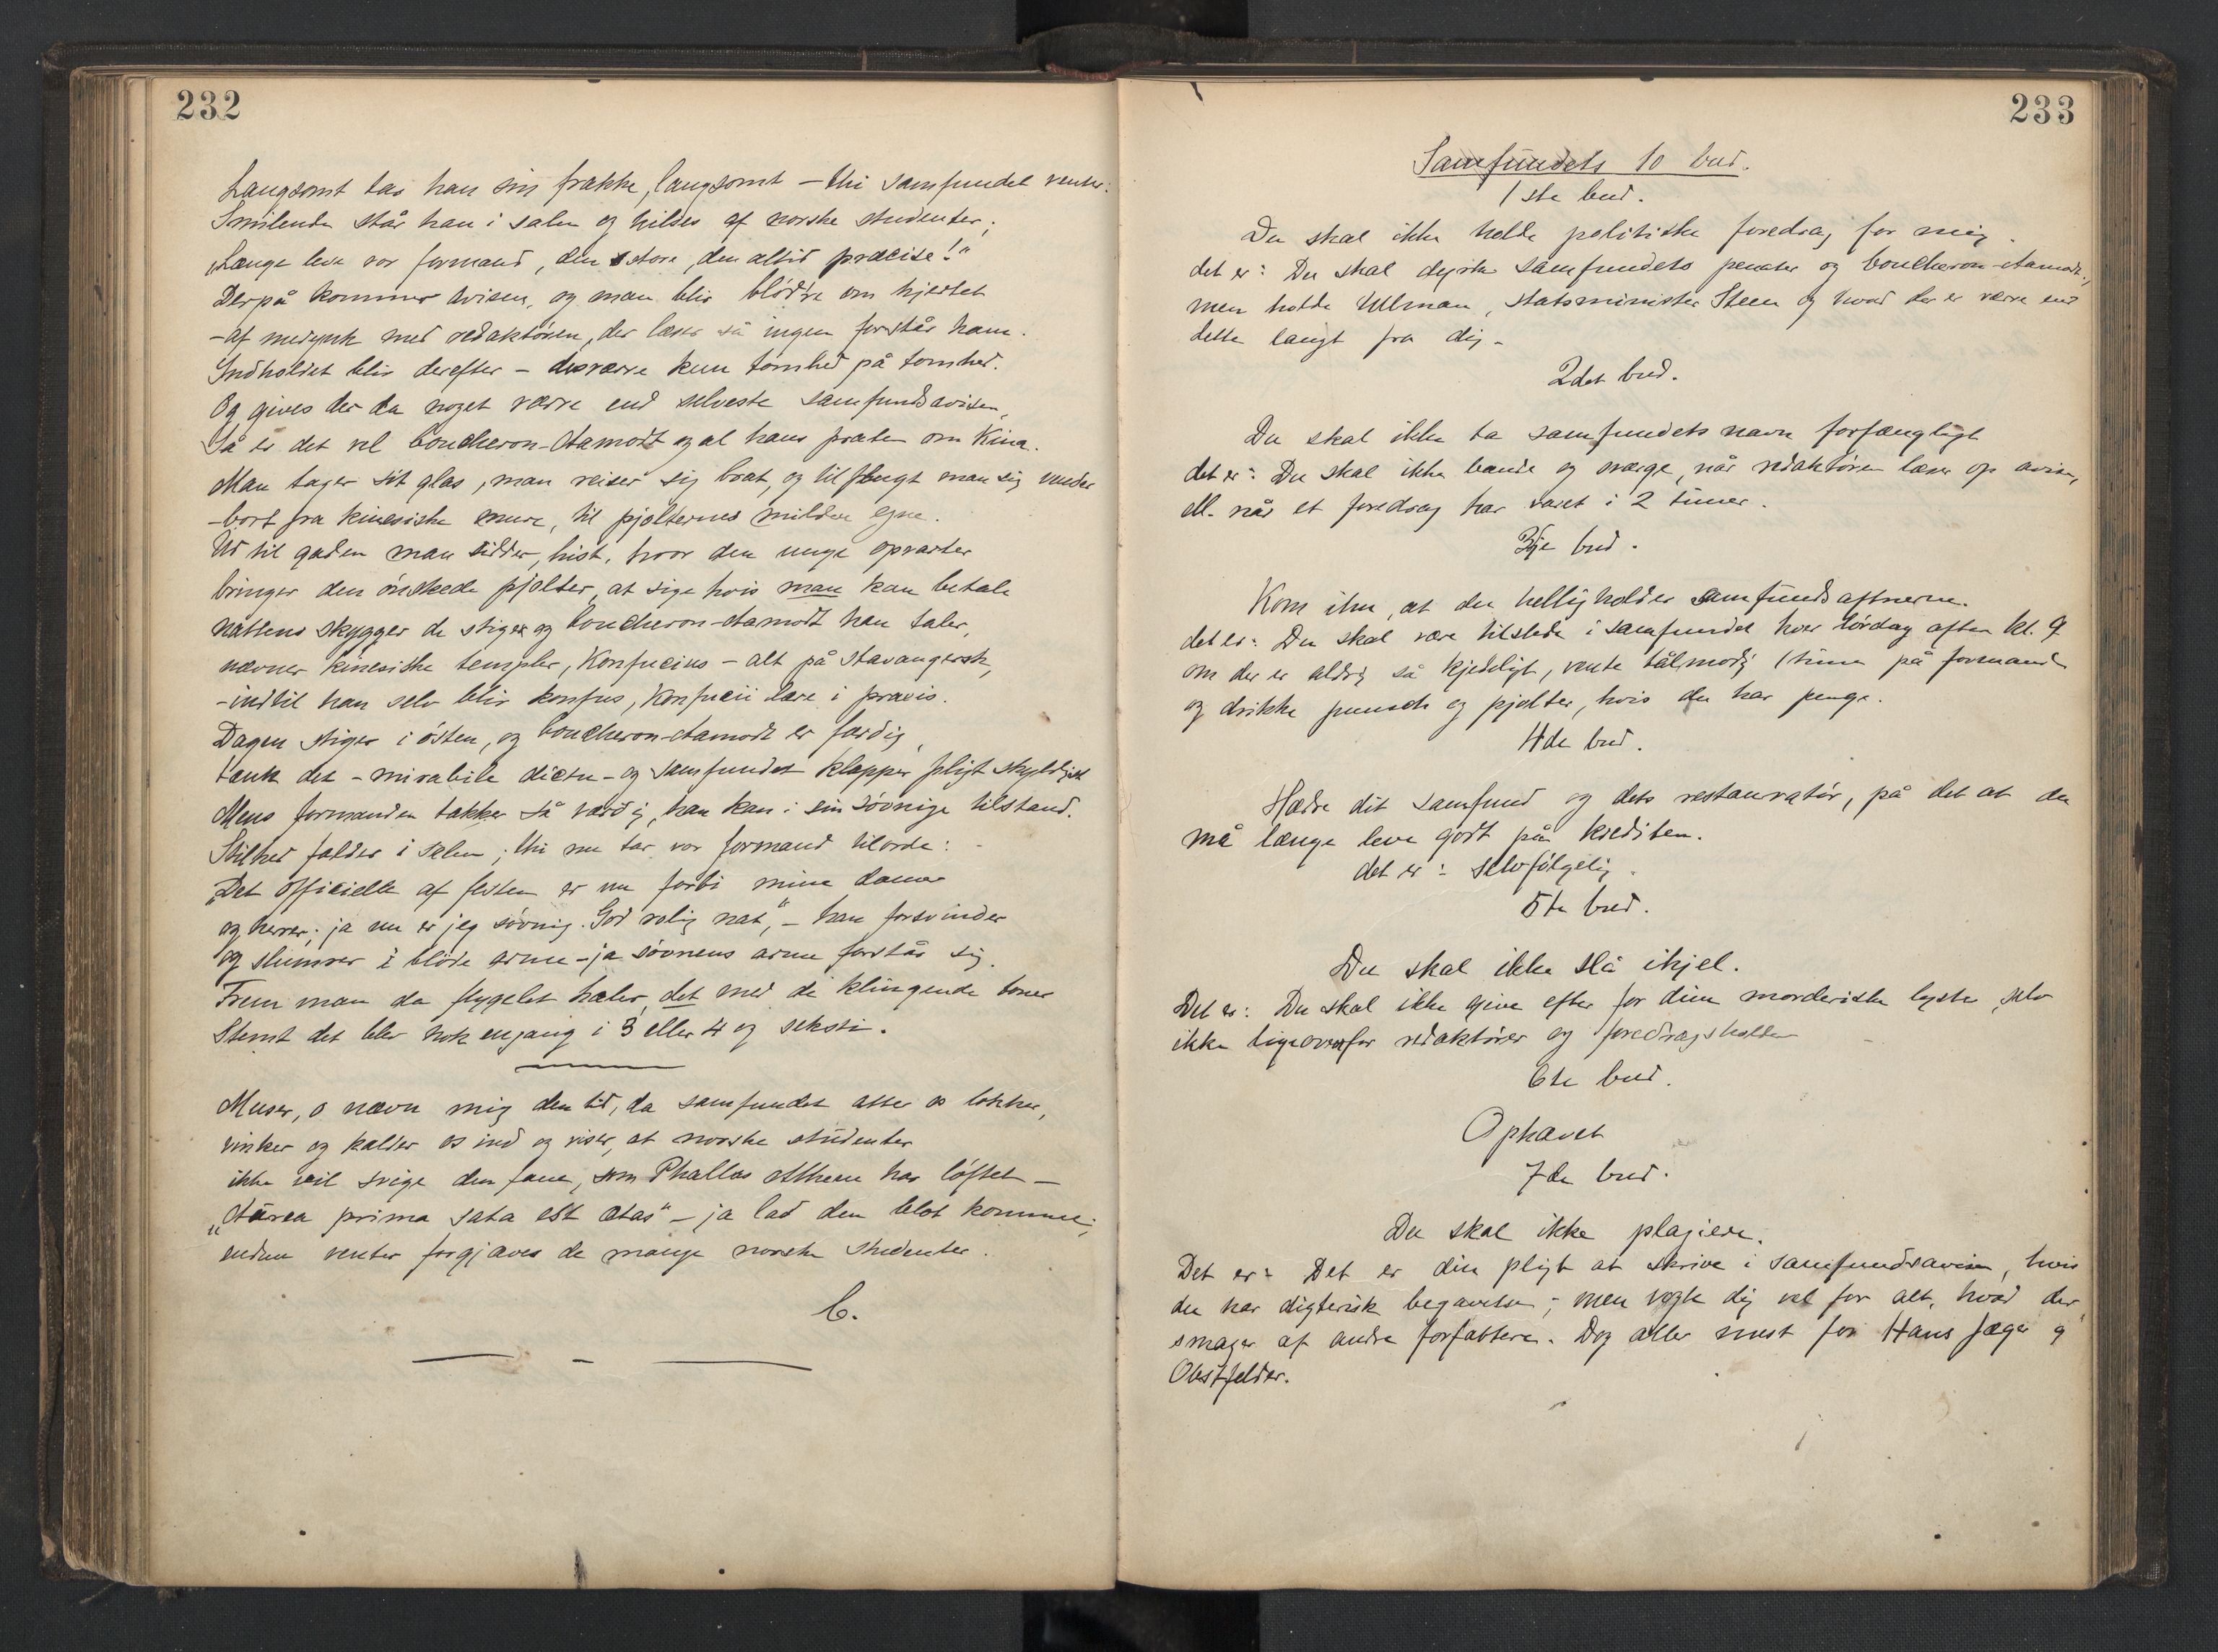 232
Langsomt tar han sin frakke, langsomt – thi samfundet venter.
Smilende står han i salen og hilses af norske studenter;
„Længe leve vor formand, den store, den altid præcise!“
Derpå kommer avisen, og man blir blödre om hjertet
– af medynk med redaktören, der læser så ingen forstår ham.
Indholdet blir derefter – desværre kun tomhed på tomhed.
Og gives der da noget værre end selveste samfundsavisen,
Så er det vel Boucheron-Aamodt og al hans praten om Kina.
Man tager sit glas, man reiser sig brat, og til flugt man sig vender
– bort fra kinesiske mure, til pjolternes mildere egne.
Ud til gaden man sidder, hist, hvor den unge opvarter
bringer den önskede pjolter, at sige hvis man kan betale
Nattens skygger de stiger og Boucheron-Aamodt han taler,
nævner kinesiske templer, Konfucius – alt på stavangersk,
– indtil han selv blir konfus, Konfucii lære i praxis.
Dagen stiger i östen, og Boucheron-Aamodt er færdig,
tænk det – mirabile dictu – og samfundet klapper pligtskyldigst
Mens formanden takker så værdig, han kan i sin sövnige tilstand.
Stilhed falder i salen; thi nu tar vor formand tilorde: –
„Det officielle af festen er nu forbi mine damer
og herrer; ja nu er jeg sövnig. God rolig nat“, – han forsvinder
og slumrer i blöde arme – ja sövnens arme forstår sig.
Frem man da flygelet haler, det med de klingende toner
Stemt det blev nok engang i 3 eller 4 og seksti.
Muser, o nævn mig den tid, da samfundet atter os lokker,
vinker og kalder os ind og viser, at norske studenter
ikke vil svige den fane, som Phallas Athene har löftet –
„Aurea prima sata est ætas“ – ja lad den blot komme;
endnu venter forgjæves de mange norske studenter.
C.
233
Samfundets 10 bud.
1ste bud.
Du skal ikke holde politiske foredrag for mig.
det er: Du skal dyrke samfundets penater og Boucheron-Aamodt,
men holde Ullman, statsminister Steen og hvad der er værre end
dette langt fra dig.
2det bud.
Du skal ikke ta samfundets navn forfængligt
det er: Du skal ikke bande og sværge, når redaktören læser op avisen,
ell. når et foredrag har varet i 2 timer.
3dje bud.
Kom ihu, at du helligholder samfundsaftnerne.
det er: Du skal være tilstede i samfundet hver lördag aften kl. 9
om der er aldrig så kjedeligt, vente tålmodig 1 time på formand
og drikke punsch og pjolter, hvis du har penge.
4de bud.
Hædre dit samfund og dets restauratör, på det at du
må længe leve godt på krediten.
det er: selvfölgelig.
5te bud.
Du skal ikke slå ihjel.
Det er: Du skal ikke give efter for dine morderiske lyster, selv
ikke ligeoverfor redaktörer og foredragsholdere
6te bud.
Ophævet
7de bud.
Du skal ikke plagiere.
Det er: Det er din pligt at skrive i samfundsavisen, hvis
du har digterisk begavelse; men vogte dig vel for alt, hvad der
smager af andre forfattere. Dog aller mest for Hans Jæger og
Obstfelder.